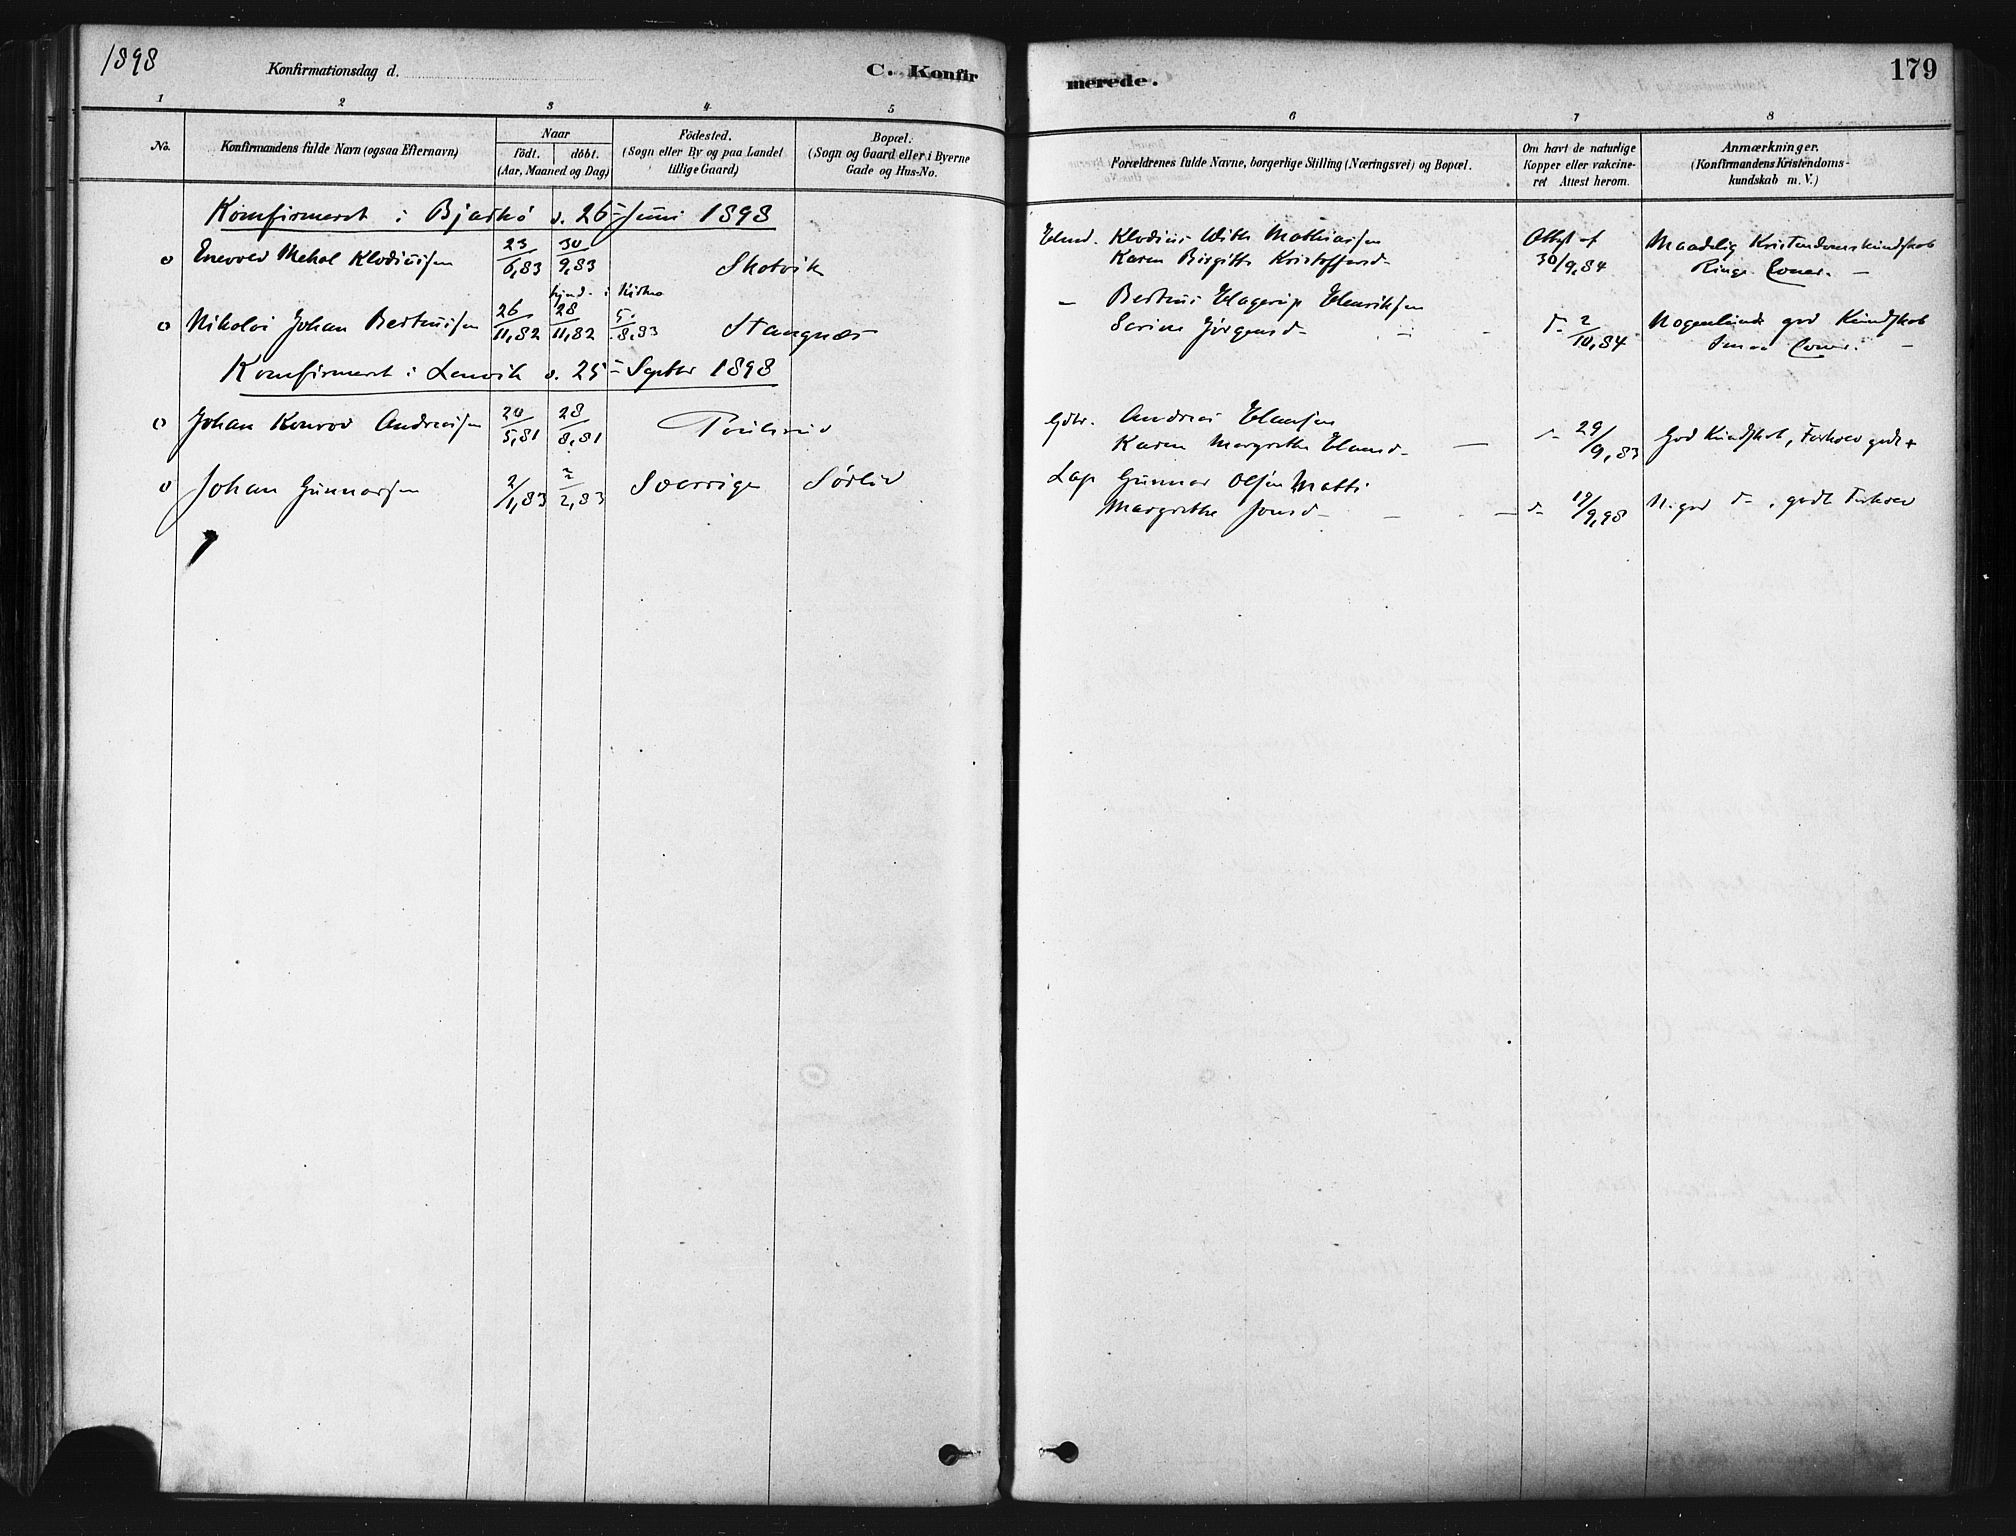 1898
Konfirmationsdag d.
C. Konfir
merede.
179
1 2 3 4 5 6 7 8
No.
Konfirmandens fulde Navn (ogsaa Efternavn)
Naar
födt. döbt.
(Aar, Maaned og Dag)
Födested.
(Sogn eller By og paa Landet
tillige Gaard)
Bopæl.
(Sogn og Gaard eller i Byerne
Gade og Hus-No.
Forældrenes fulde Navne, borgerlige Stilling (Næringsvei) og Bopæl.
Om havt de naturlige
Kopper eller vakcine-
ret Attest herom.
Anmærkninger.
(Konfirmandens Kristendoms-
kundskab m. V.)
Konfirmeret i Bjarkö d. 26 Juni 1898
o Enevold Mekal Klodiussen 23/6,83 30/9,83 Skotvik
Klodius With Mathiassen
Karen Birgitte Kristoffersd.
Attest af 30/9,84
Maadelig Kristendomskundskab
Ringe
hjmd. i Kirke
o Nikolai Johan Bertiussen 26/11,82 28/11,82 5/8,83 Stangnæs
— Bertius Hagerup Henriksen
Serine Jörgensd. —
d— 2/10,84
Nogenlunde god Kundskab
Konfirmeret i Lenvik d. 25 Septbr 1898
o Johan Konrad Andreassen 20/5,81 28/8,81
Gbr. Andreas Hansen
Karen Margrethe Hansd. —
d— 29/9,83
God Kundskab, Forhold godt
o Johan Gunnarsen 2/1,83 2/2,83 Sverrige Sörliv
Lap Gunnar Olsen Matti
Margrethe Jonsd. —
d— 19/9,98
N. god d— , godt Forhold